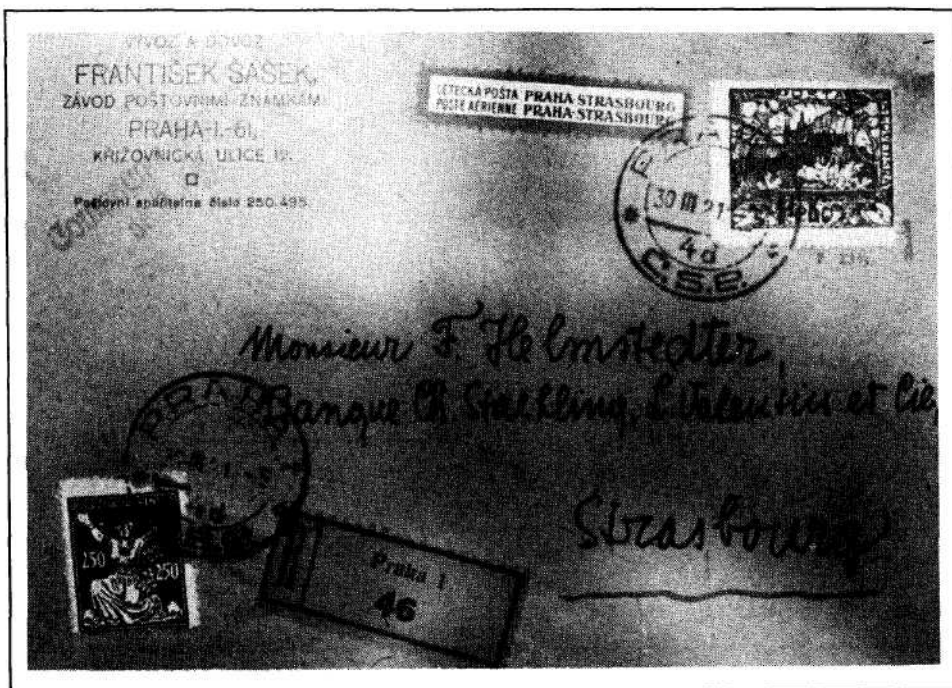 VÝVOZ A DOVOZ
FRANTIŠEK ŠAŠEK,
ZÁVOD POŠTOVNÍMI ZNÁMKAMI
PRAHA-I.-61,
KŘIŽOVNICKÁ ULICE 19.
Poštovní spořitelna číslo 250.495.
LETECKÁ POŠTA PRAHA-STRASBOURG
POSTE AÉRIENNE PRAHA-STRASBOURG
30 III 21
4d
Č.S.P.
Monsieur F. Helmstedter,
Banque Ch. Staehling, L. Valentin et Cie,
Strasbourg
PRAHA
250 250
Praha 1
46